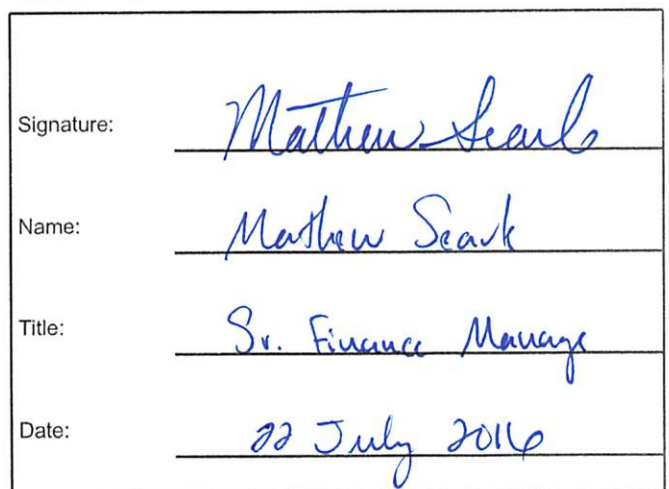 Signature: Mathew Searls
Name: Mathew Searls
Title: Sr. Finance Manager
Date: 22 July 2016